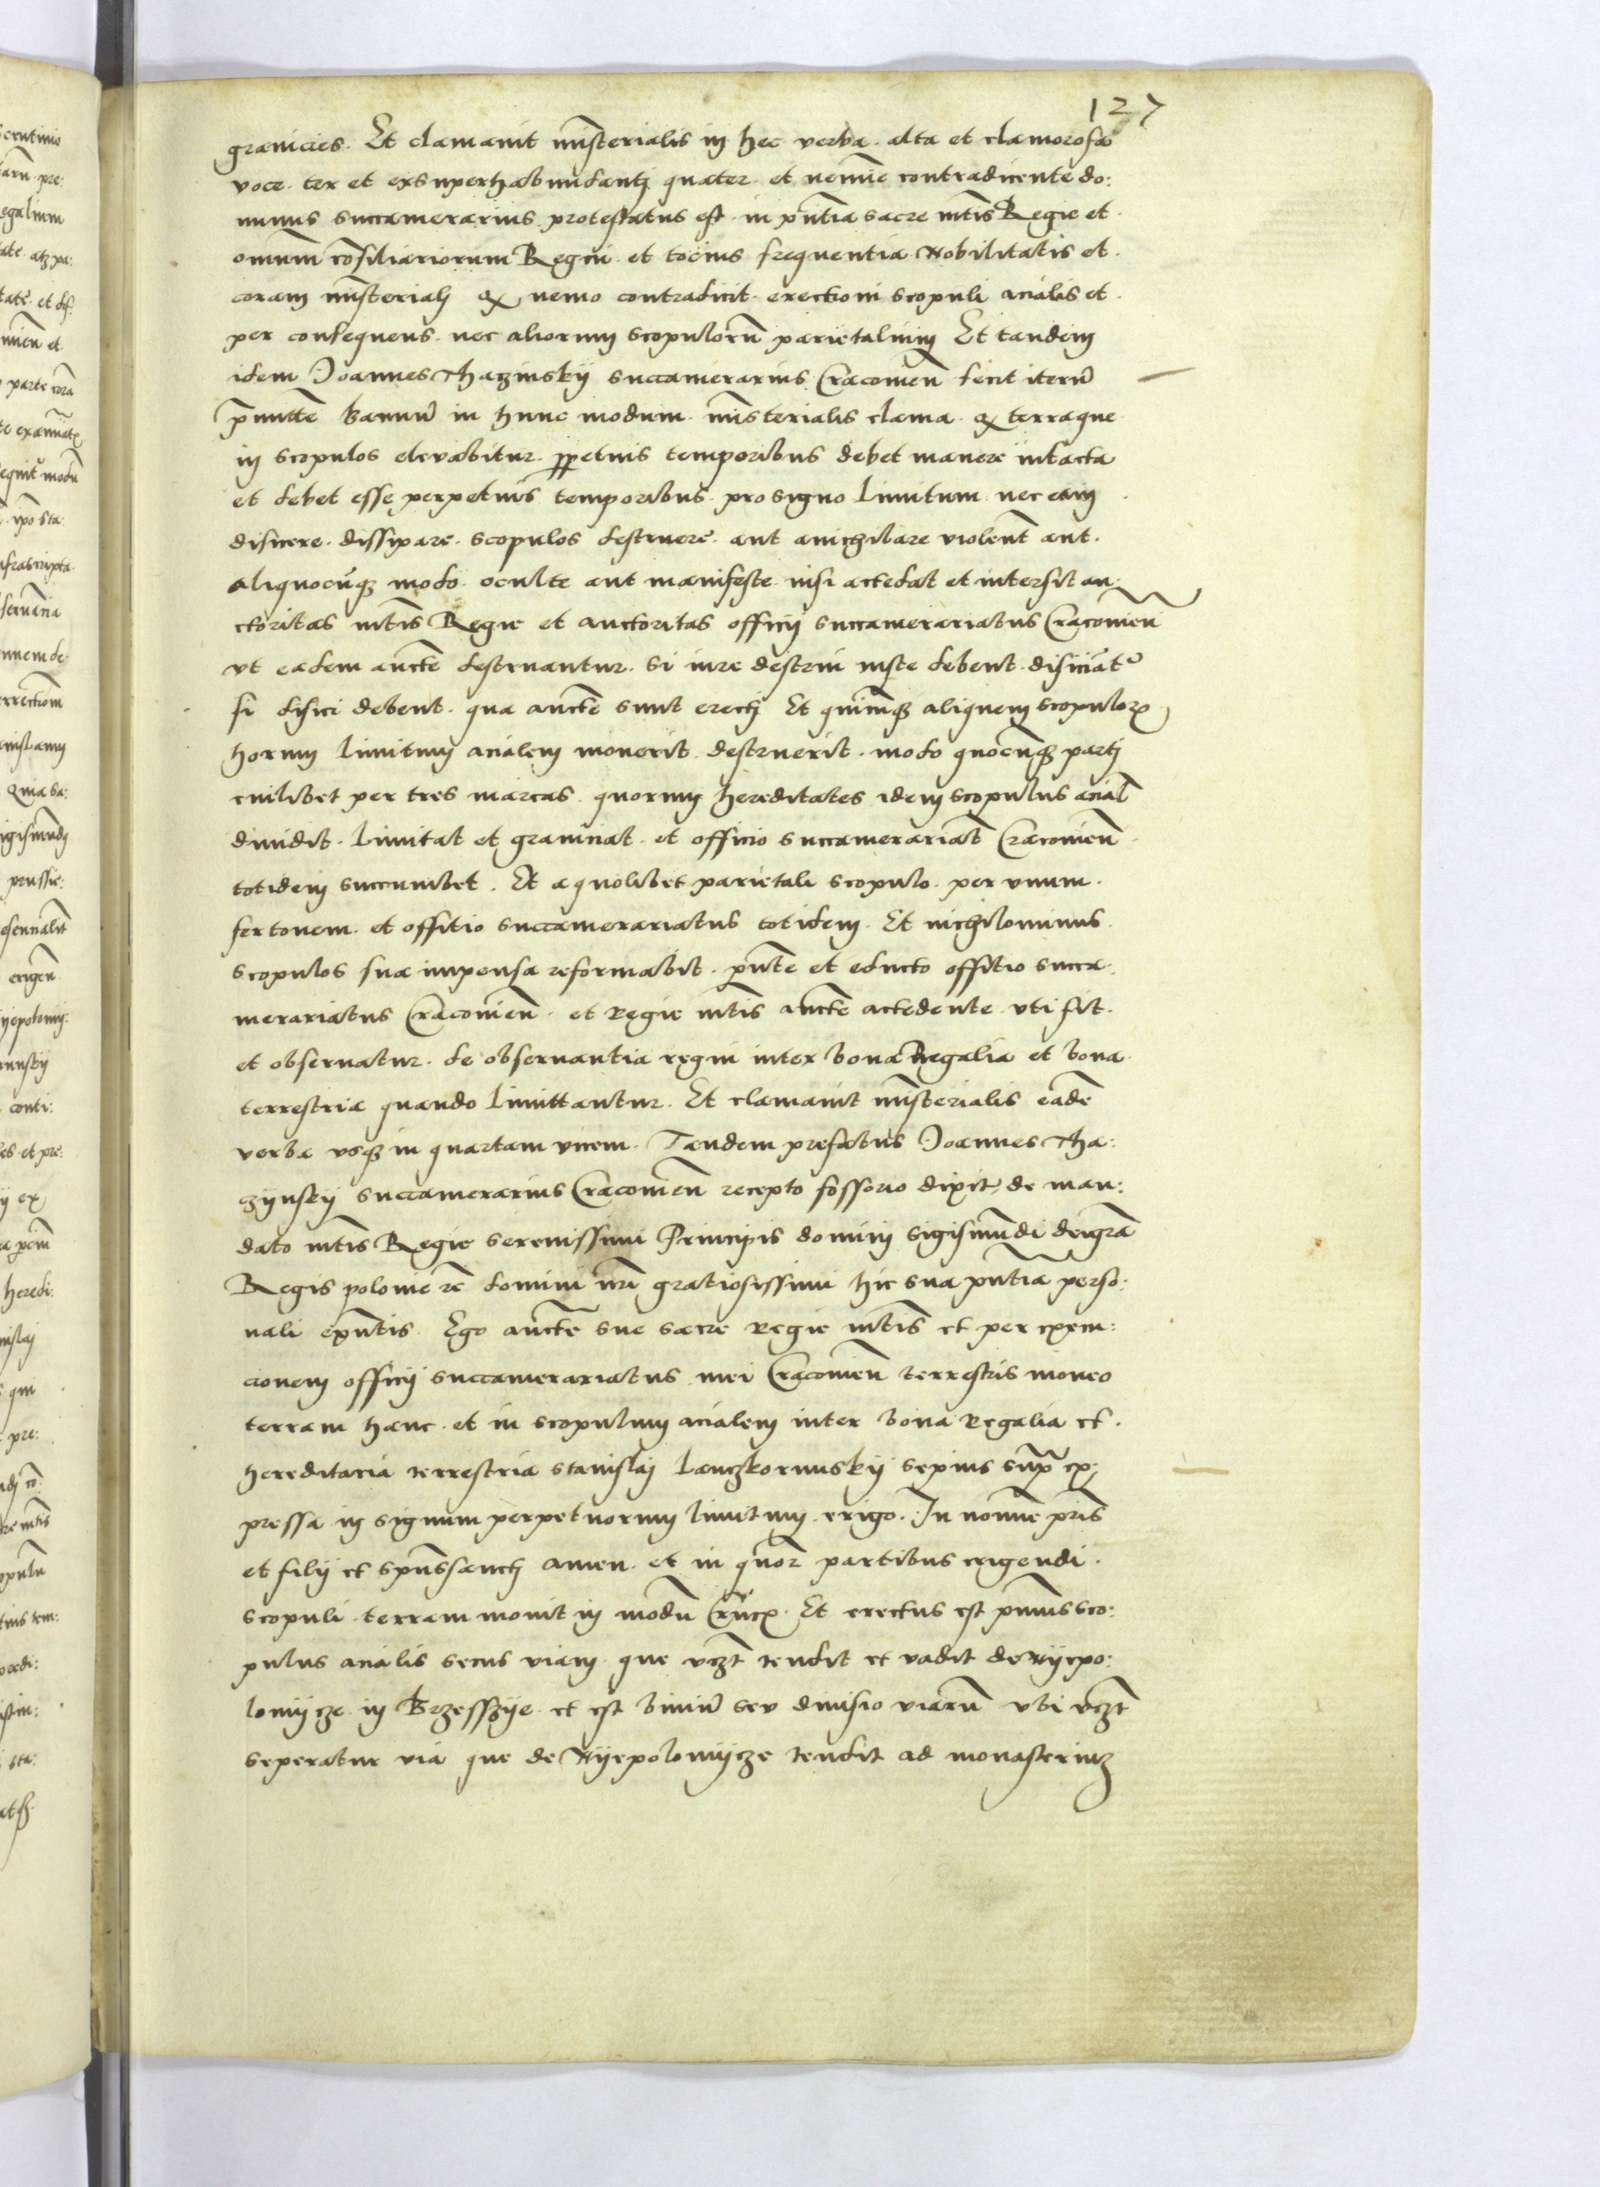 127
granicies. Et clamavit mīsterialis in hec verba. alta et clamorosa
voce. ter et exsuperhabundanti quater. et nemīe contradicente do:
minus succamerarius protestatus est. in pn̄tia sacre mtis Regie et.
omniūm cōsiliariorum Regni. et tocius frequentia Nobilitatis et.
coram mīsteriali q nemo contradicit. erectioni scopuli acialis et.
per consequens. nec aliorum scopulorū parietalium Et tandem
idem Joannes Thaczinskij succamerarius Cracouien̄ fecit iterū
p̄mitte bannū in hunc modum. mīsterialis clama. q terraque
in scopulos elevabitur. ppetuis temporibus debet manere intacta
et debet esse perpetuis temporibus. pro signo limitum. nec eam
disicere. dissipare. scopulos destruere. aut anichilare violent̄ aut.
aliquocūqȝ modo. oculte aut manifeste. nisi accedat et intersit au:
ctoritas mtis Regie et auctoritas officii succamerariatus Cracouien̄
vt eadem aucte destruantur. si iure destrui iuste debent. disiciāt
si disici debent. qua aucte sunt erecti Et quicūqȝ aliquem scopulor
horum limitum acialem moverit. destruerit. modo quocūqȝ parti
cuilibet per tres marcas. quorum hereditates idem scopulus acial
dividit. limitat et graniciat. et officio succamerariat̄ Cracouien̄.
totidem succumbet. Et a quolibet parietali scopulo. per vnum.
fertonem. et offitio succamerariatus totidem. Et nichilominus.
scopulos sua impensa reformabit. pn̄te et educto offitio succa:
merariatus Cracouien̄. et Regie mtis aucte accedente. vti fit.
et observatur. de observantia regni inter bona Regalia et bona
terrestria quando limittantur. Et clamavit mīsterialis eadē
verba vsqȝ in quartam vicem. Tandem prefatus Joannes Tha:
czijnskij succamerarius Cracouien̄ recepto fossorio dixit. de man:
dato mtis Regie serenissimi Principis domini Sigismūdi dei grā
Regis polonie rē domini nrī gratiosissimi hic sua pn̄tia perso:
nali expn̄tis. Ego aucte sue sacre Regie mtis et per exem:
cionem officij succamerariatus mei Cracouien̄ terrestris moveo
terram hanc. et in scopulum acialem inter bona Regalia et.
hereditaria terrestria Stanislai Lanczkorunskij sepius supra ex:
pressa in signum perpetuorum limitum erigo. In nomīe pris
et filij et spūs sancti amen. et in quor partibus erigendi.
scopuli. terram movit in modū crucis. Et erectus est pmus sco:
pulus acialis secus viam que vczt tendit et vadit de Nijepo:
lomijcze in Brzesszije et est biviū seu divisio viarū vbi vczt
seperatur via que de Nijepolomijcze tendit ad monasteriuȝ